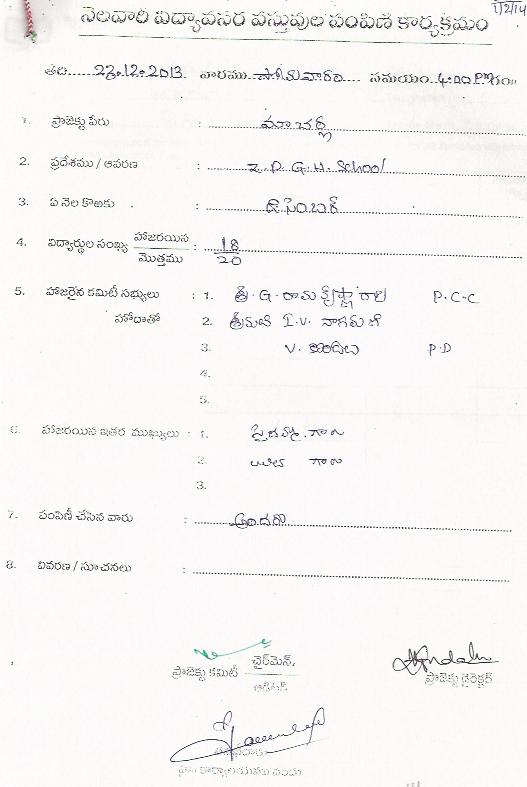 1/2/14
నెలవారి విద్యావసర వస్తువుల పంపిణి కార్యక్రమం
తేది..... 23.12.2013. వారము సోమవారం సమయం. 4:00 P.M గం॥
1. ప్రాజెక్టు పేరు : మాచర్ల
2. ప్రదేశము / ఆవరణ : Z. P. G. H. School
3. ఏ నెల కొఱకు : డిసెంబర్
4. విద్యార్థుల సంఖ్య హాజరయిన / మొత్తము : 18 / 20
5. హాజరైన కమిటీ సభ్యులు : 1. శ్రీ. G. రామకృష్ణా రావు P.C.C
హోదాతో 2. శ్రీమతి I.V. నాగమణి
3. V. P.D
4.
5.
6. హాజరయిన ఇతర ముఖ్యులు : 1. గారు
2. గారు
3.
7. పంపిణీ చేసిన వారు : అందరు
8. వివరణ / సూచనలు :
ప్రాజెక్టు కమిటీ ఛైర్‌మెన్.
ఆడిటర్
ప్రాజెక్టు డైరెక్టర్